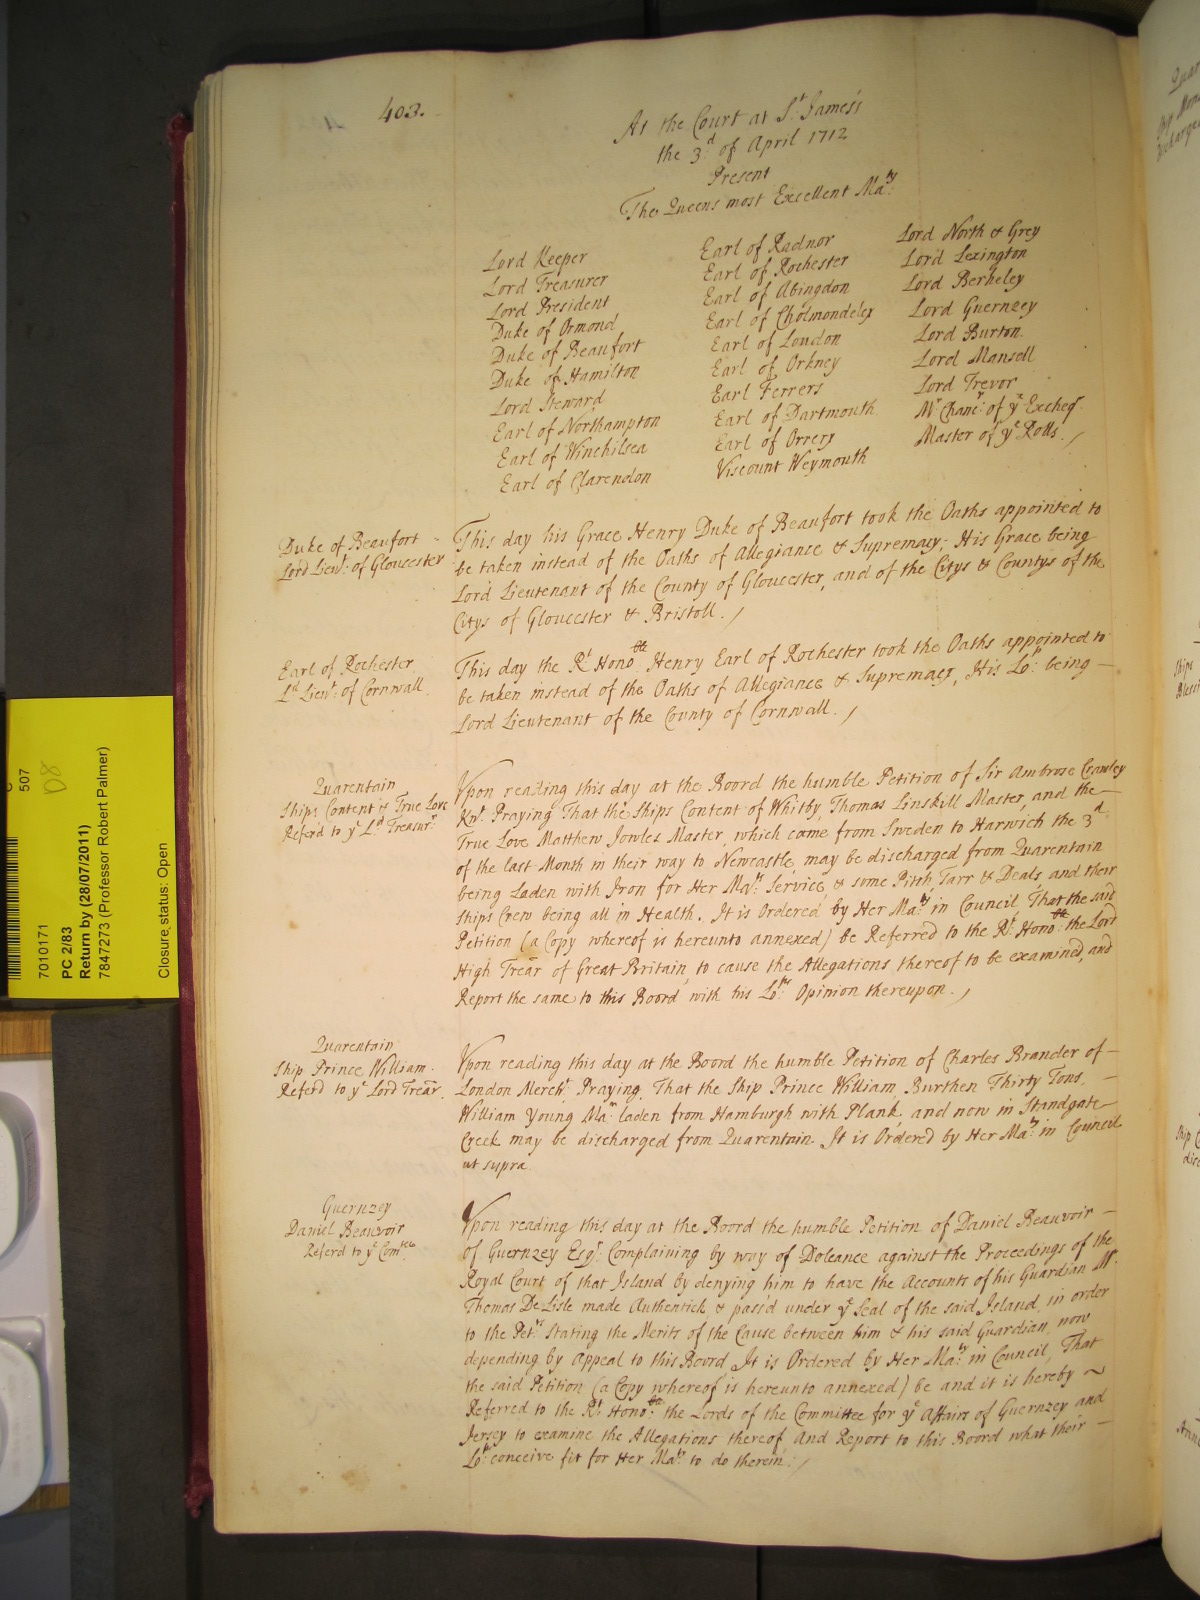 403.
At the Court at St. James's
the 3d. of April 1712
Present
The Queens most Excellent Maty:
Lord Keeper
Lord Treasurer
Lord President
Duke of Ormond
Duke of Beaufort
Duke of Hamilton
Lord Steward
Earl of Northampton
Earl of Winchilsea
Earl of Clarendon
Earl of Radnor
Earl of Rochester
Earl of Abingdon
Earl of Cholmondeley
Earl of Loudon
Earl of Orkney
Earl Ferrers
Earl of Dartmouth
Earl of Orrery
Viscount Weymouth
Lord North & Grey
Lord Lexington
Lord Berkeley
Lord Guernzey
Lord Burton
Lord Mansell
Lord Trevor
Mr. Chancr: of ye Excheqr.
Master of ye Rolls. /
Duke of Beaufort -
Lord Lieut: of Gloucester
This day his Grace Henry Duke of Beaufort took the Oaths appointed to
be taken instead of the Oaths of Allegiance & Supremacy; His Grace being
Lord Lieutenant of the County of Gloucester, and of the Citys & Countys of the
Citys of Gloucester & Bristoll. /
Earl of Rochester
Ld Lieut: of Cornwall
This day the Rt Honoble Henry Earl of Rochester took the Oaths appointed to
be taken instead of the Oaths of Allegiance & Supremacy, His Lop: being —
Lord Lieutenant of the County of Cornwall. /
Quarentain
Ships Content & True Love
Referd to ye Ld Treasurr.
Vpon reading this day at the Board the humble Petition of Sir Ambrose Crawley
Knt. Praying That the Ships Content of Whitby, Thomas Linskill Master, and the —
True Love Matthew Jowles Master, which came from Sweden to Harwich the 3d.
of the last Month in their way to Newcastle, may be discharged from Quarentain
being Laden with Iron for Her Mats. Service, & some Pitch, Tarr & Deals, and their
Ships Crew being all in Health. It is Ordered by Her Maty: in Council, That the said
Petition (a Copy whereof is hereunto annexed) be Referred to the Rt Honoble: the Lord
High Trear of Great Britain, to cause the Allegations thereof to be examined, and
Report the same to this Board with his Lops: Opinion thereupon. /
Quarentain
Ship Prince William.
Referd to ye Lord Trear.
Vpon reading this day at the Board the humble Petition of Charles Brander of —
London Mercht. Praying, That the Ship Prince William, Burthen Thirty Tons, —
William Young Mar: laden from Hamburgh with Plank, and now in Standgate —
Creek may be discharged from Quarentain. It is Ordered by Her Maty: in Council
ut supra.
Guernzey
Daniel Beauvoir
Referd to ye Comtee
Vpon reading this day at the Board the humble Petition of Daniel Beauvoir —
of Guernzey Esqr. Complaining by way of Doleance against the Proceedings of the
Royal Court of that Island by denying him to have the Accounts of his Guardian Mr.
Thomas De Lisle made Authentick & pass'd under ye Seal of the said Island, in order
to the Petrs Stating the Merits of the Cause between him & his said Guardian, now
depending by Appeal to this Board. It is Ordered by Her Maty: in Council, That
the said Petition (a Copy whereof is hereunto annexed) be and it is hereby ~
Referred to the Rt Honoble: the Lords of the Committee for ye Affairs of Guernzey and
Jersey to examine the Allegations thereof, And Report to this Board what their —
Lops: conceive fit for Her Maty: to do therein. /
507
D8
7010171
PC 2/83
Return by (28/07/2011)
7847273 (Professor Robert Palmer)
Closure status: Open